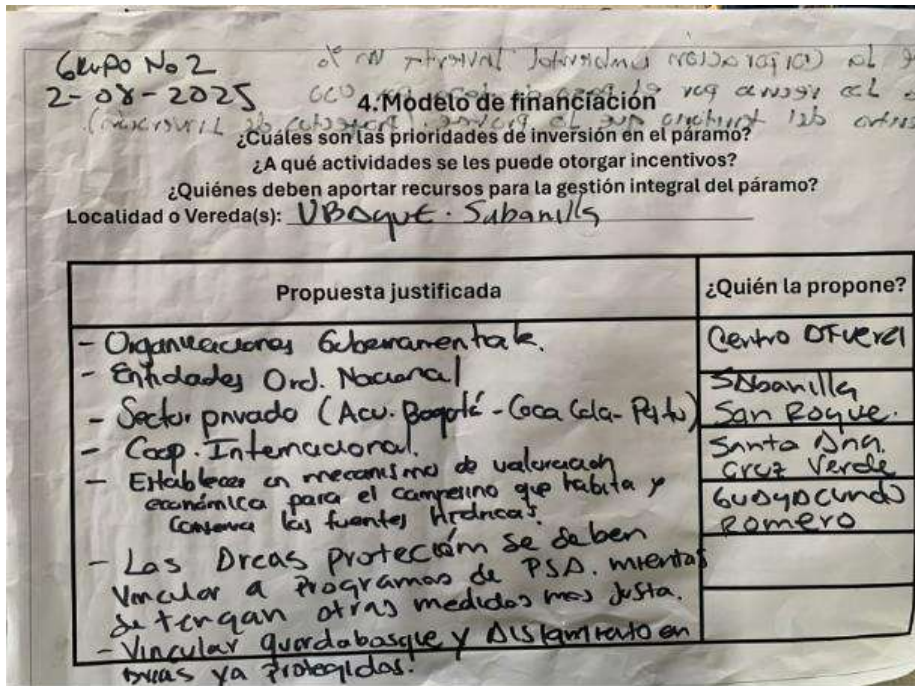 Grupo No 2
2-08-2025
4. Modelo de financiación
¿Cuáles son las prioridades de inversión en el páramo?
¿A qué actividades se les puede otorgar incentivos?
¿Quiénes deben aportar recursos para la gestión integral del páramo?
Localidad o Vereda(s): UBAque. Sabanilla
Propuesta justificada
¿Quién la propone?
- Organizaciones Gubernamentale.
- Entidades Ord. Nacional
- Sector privado (Acu. Bogotá - Coca Cola -
- Coop. Internacional.
- Establecer un mecanismo de valoración
económica para el campesino que habita y
conserva las fuentes hídricas.
- Las Areas protección se deben
Vincular a Programas de PSA. mientas
se tengan otras medidas mas Justa.
- Vincular guardabasque y Aislamiento en
areas ya protegidas.
Centro
Sabanilla
San Roque.
Santa Ana.
Cruz Verde
Romero